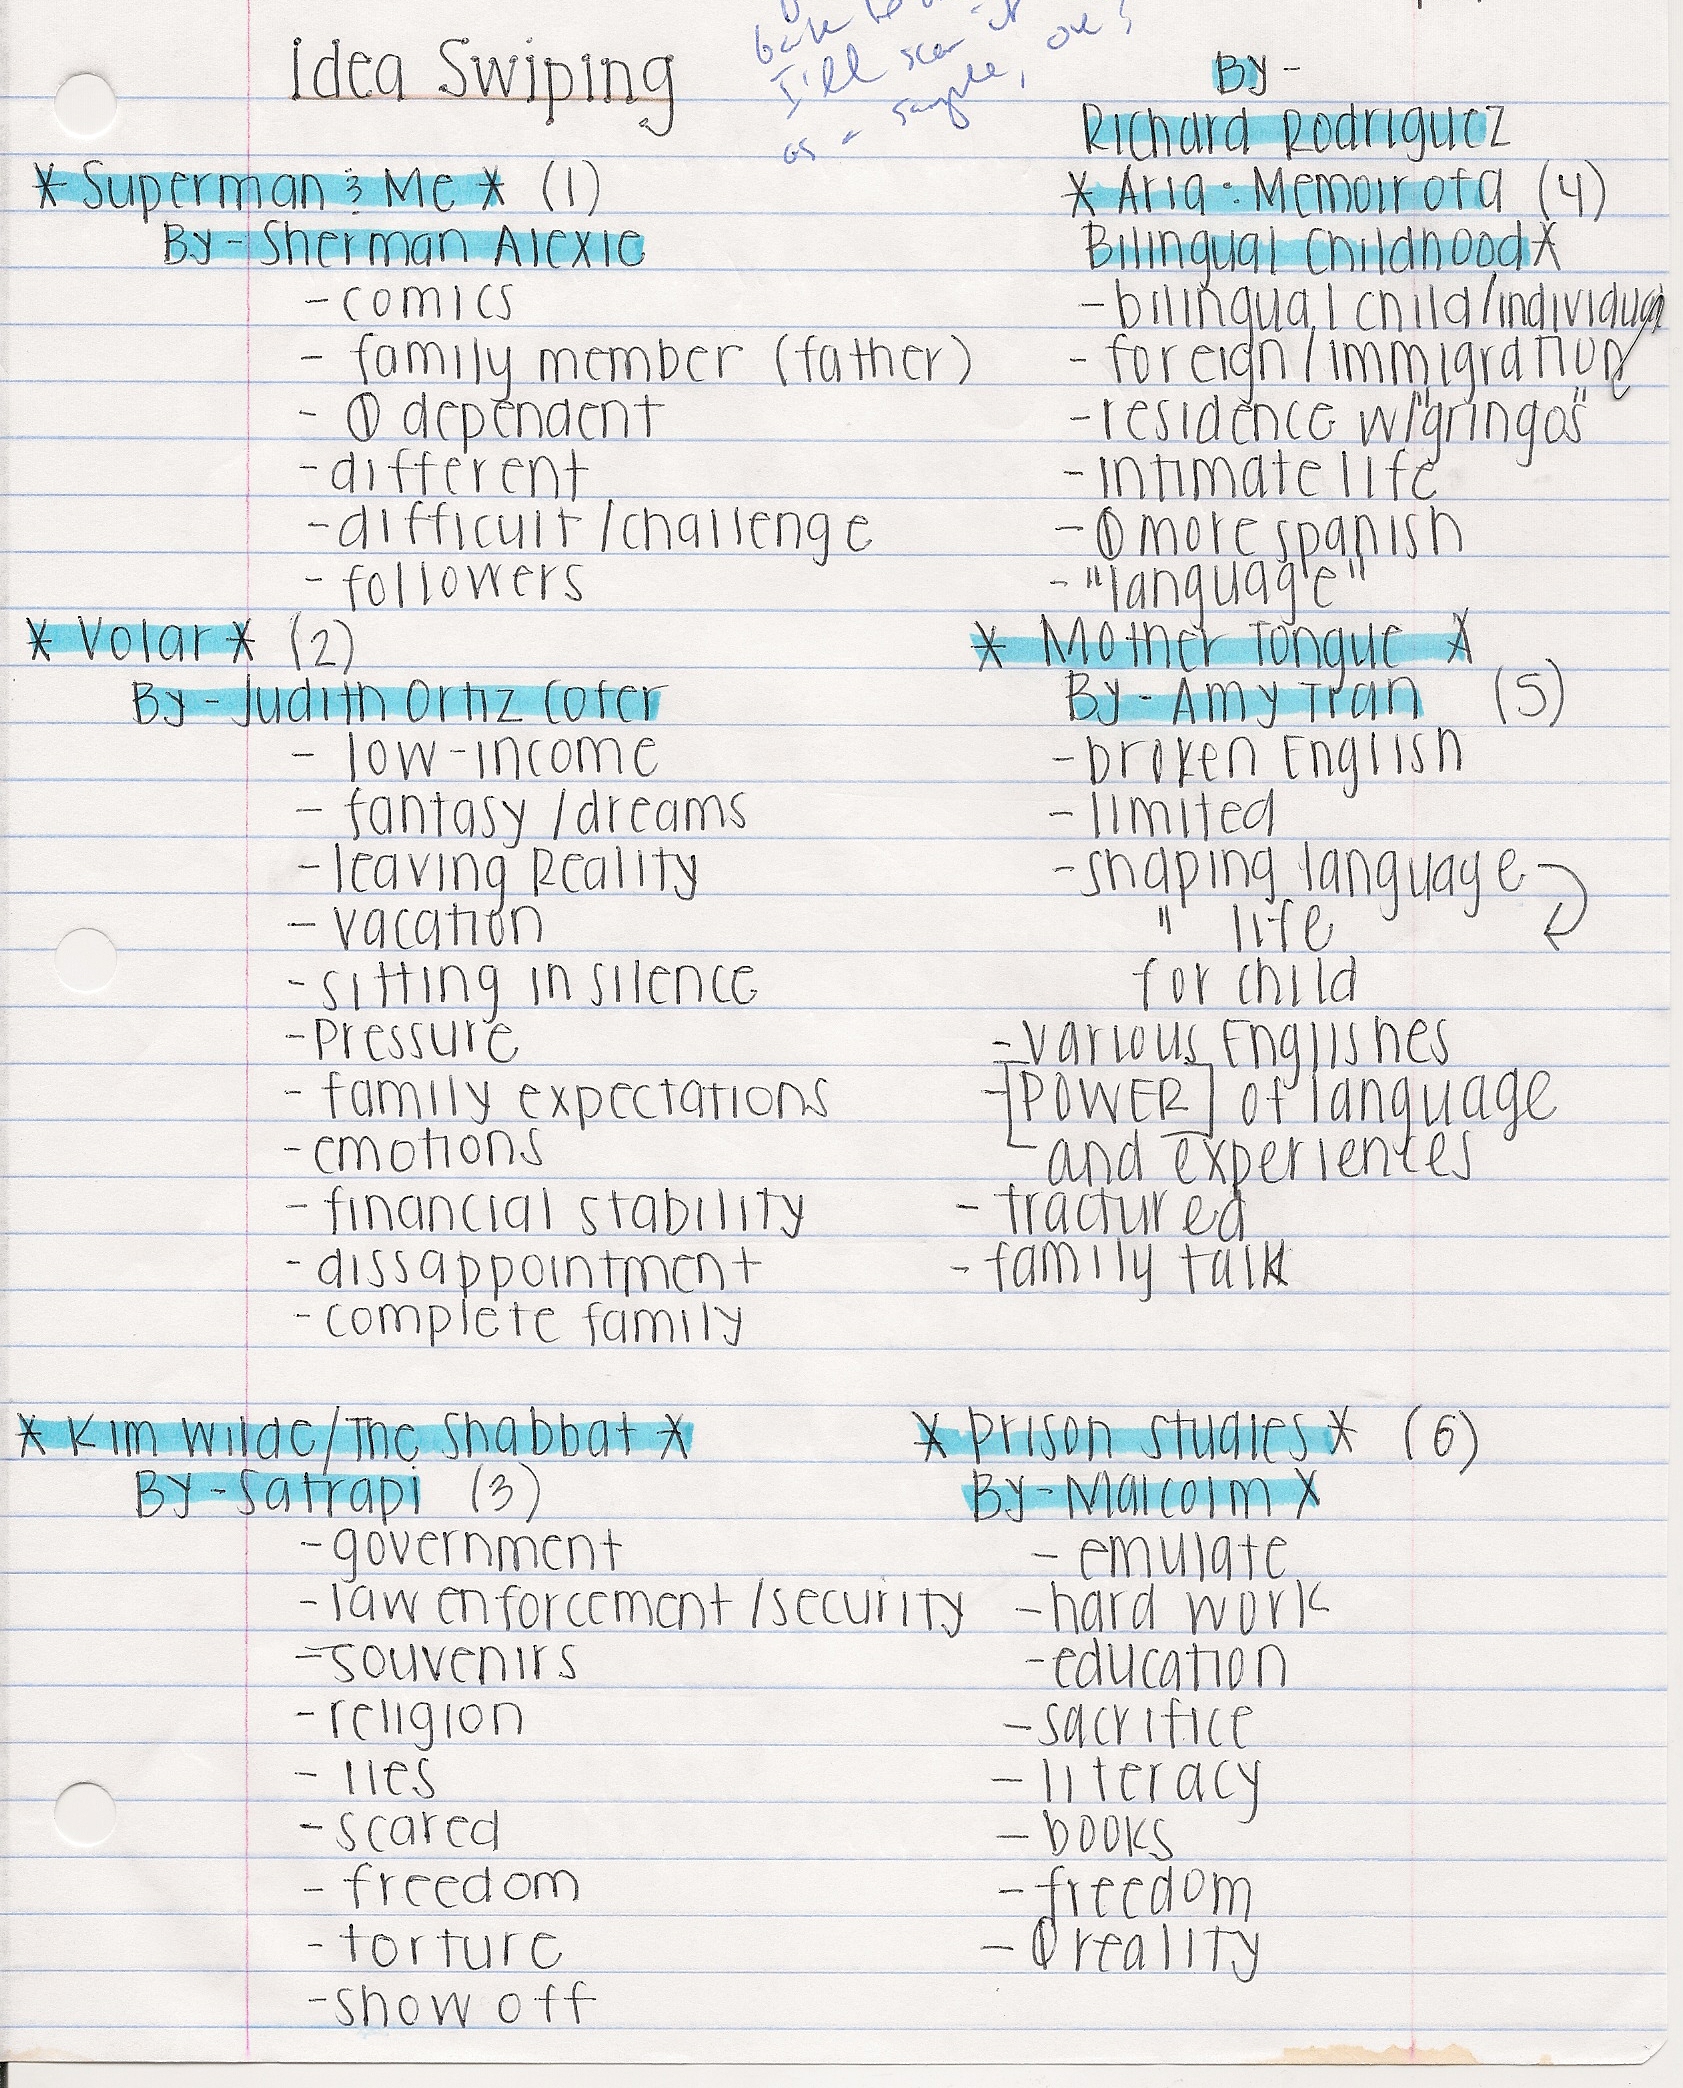 Idea Swiping
I'll
as a sample,
* Superman & Me * (1)
By - Sherman Alexie
- comics
- family member (father)
- Ø dependent
- different
- difficult / challenge
- followers
* Volar * (2)
By - Judith Ortiz Cofer
- low-income
- fantasy / dreams
- leaving Reality
- vacation
- sitting in silence
- Pressure
- family expectations
- emotions
- financial stability
- dissappointment
- complete family
* Kim Wilde/The Shabbat *
By - Satrapi (3)
- government
- law enforcement / security
- souvenirs
- religion
- lies
- scared
- freedom
- torture
- show off
By -
Richard Rodriguez
* Aria: Memoir of a (4)
Bilingual Childhood *
- bilingual child/individual
- foreign / immigration
- residence w/"gringos"
- intimate life
- Ø more spanish
- "language"
* Mother Tongue *
By - Amy Tran (5)
- broken English
- limited
- shaping language
" life
for child
- various Englishes
- [POWER] of language
and experiences
- fractured
- family talk
* Prison Studies * (6)
By - Malcolm X
- emulate
- hard work
- education
- sacrifice
- literacy
- books
- freedom
- Ø reality